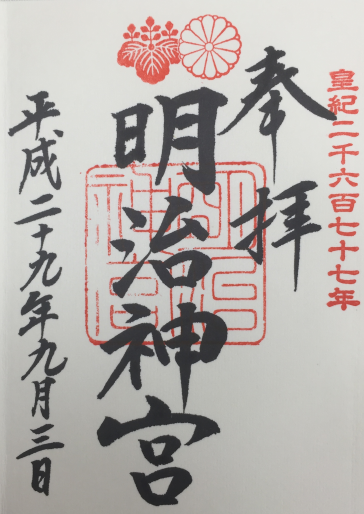 皇紀二千六百七十七年
奉拝
明治神宮
明治神宮
平成二十九年九月三日